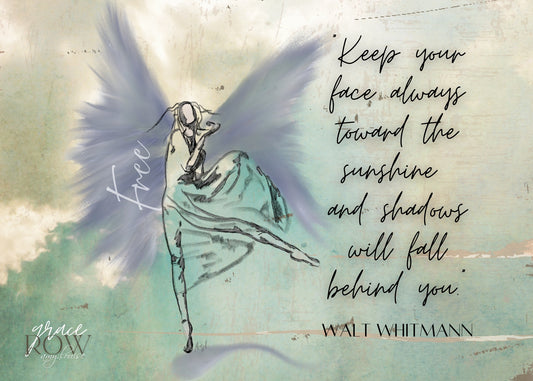 "Keep your
face always
toward the
sunshine
and shadows
will fall
behind you."
WALT WHITMANN
Free
grace
ROW